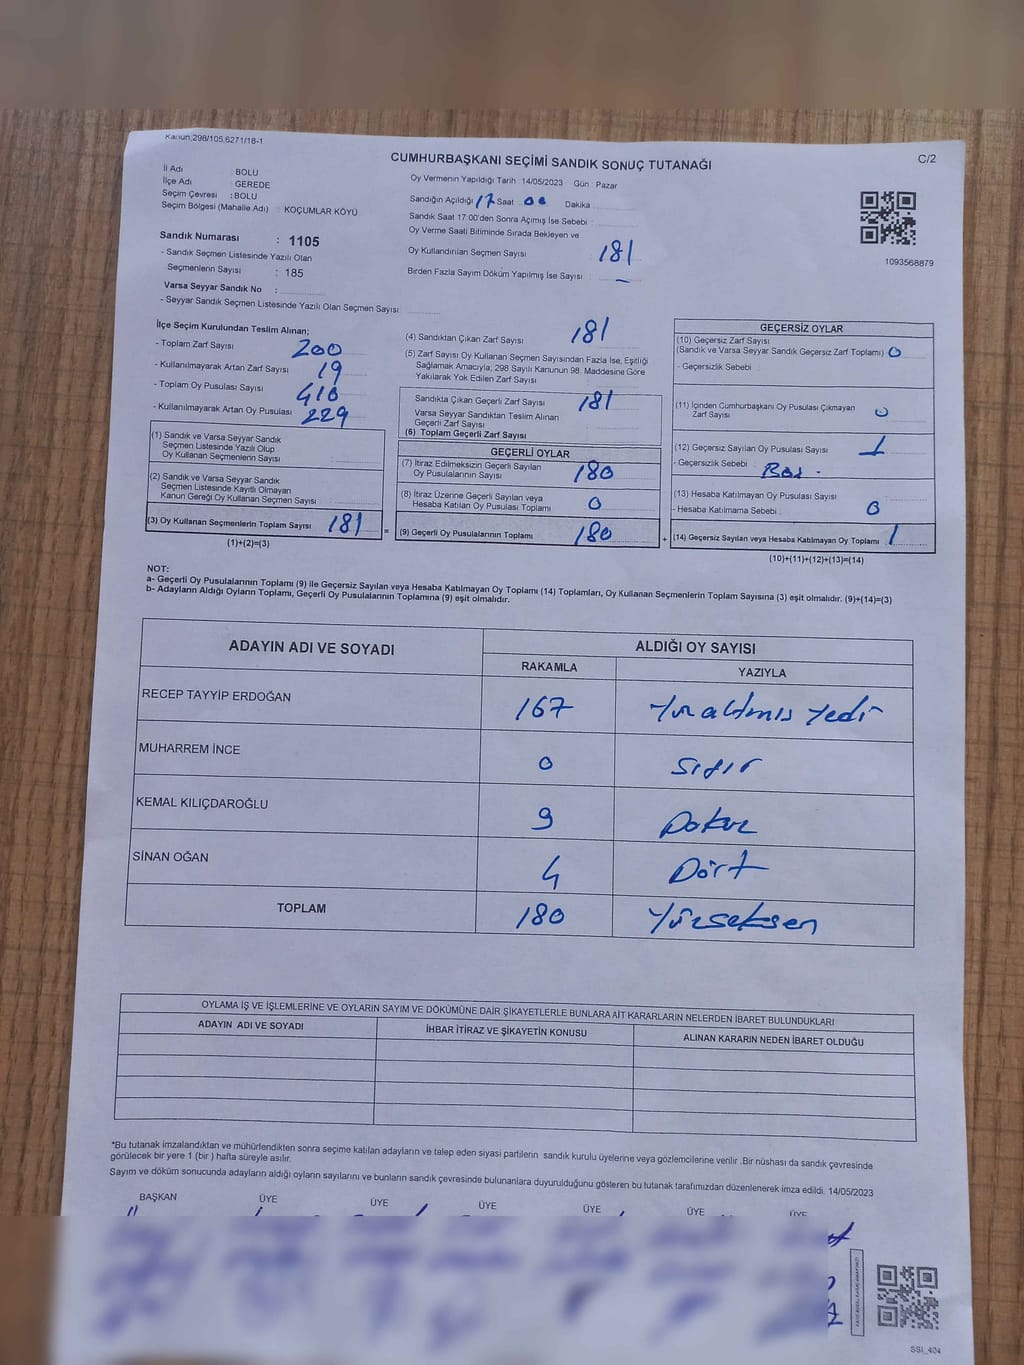 Kanun;298/105,6271/18-1
CUMHURBAŞKANI SEÇİMİ SANDIK SONUÇ TUTANAĞI
C/2
İl Adı : BOLU
İlçe Adı : GEREDE
Seçim Çevresi : BOLU
Seçim Bölgesi (Mahalle Adı) : KOÇUMLAR KÖYÜ
Sandık Numarası : 1105
- Sandık Seçmen Listesinde Yazılı Olan
Seçmenlerin Sayısı : 185
Varsa Seyyar Sandık No :
- Seyyar Sandık Seçmen Listesinde Yazılı Olan Seçmen Sayısı:
Oy Vermenin Yapıldığı Tarih : 14/05/2023 Gün : Pazar
Sandığın Açıldığı 17 Saat 00 Dakika
Sandık Saat 17:00'den Sonra Açımış İse Sebebi :
Oy Verme Saati Bitiminde Sırada Bekleyen ve
Oy Kullandırılan Seçmen Sayısı : 181
Birden Fazla Sayım Döküm Yapılmış İse Sayısı : —
1093568879
İlçe Seçim Kurulundan Teslim Alınan;
- Toplam Zarf Sayısı : 200
- Kullanılmayarak Artan Zarf Sayısı : 19
- Toplam Oy Pusulası Sayısı : 410
- Kullanılmayarak Artan Oy Pusulası : 229
(1) Sandık ve Varsa Seyyar Sandık
Seçmen Listesinde Yazılı Olup
Oy Kullanan Seçmenlerin Sayısı :
(2) Sandık ve Varsa Seyyar Sandık
Seçmen Listesinde Kayıtlı Olmayan
Kanun Gereği Oy Kullanan Seçmen Sayısı :
(3) Oy Kullanan Seçmenlerin Toplam Sayısı : 181 =
(1)+(2)=(3)
(4) Sandıktan Çıkan Zarf Sayısı : 181
(5) Zarf Sayısı Oy Kullanan Seçmen Sayısından Fazla İse, Eşitliği
Sağlamak Amacıyla; 298 Sayılı Kanunun 98. Maddesine Göre
Yakılarak Yok Edilen Zarf Sayısı :
Sandıkta Çıkan Geçerli Zarf Sayısı : 181
Varsa Seyyar Sandıktan Teslim Alınan
Geçerli Zarf Sayısı :
(6) Toplam Geçerli Zarf Sayısı
GEÇERLİ OYLAR
(7) İtiraz Edilmeksizin Geçerli Sayılan
Oy Pusulalarının Sayısı : 180
(8) İtiraz Üzerine Geçerli Sayılan veya
Hesaba Katılan Oy Pusulası Toplamı : 0
(9) Geçerli Oy Pusulalarının Toplamı : 180 +
GEÇERSİZ OYLAR
(10) Geçersiz Zarf Sayısı
(Sandık ve Varsa Seyyar Sandık Geçersiz Zarf Toplamı) : 0
- Geçersizlik Sebebi :
(11) İçinden Cumhurbaşkanı Oy Pusulası Çıkmayan
Zarf Sayısı : 0
(12) Geçersiz Sayılan Oy Pusulası Sayısı : 1
- Geçersizlik Sebebi : Boş.
(13) Hesaba Katılmayan Oy Pusulası Sayısı :
- Hesaba Katılmama Sebebi : 0
(14) Geçersiz Sayılan veya Hesaba Katılmayan Oy Toplamı : 1
(10)+(11)+(12)+(13)=(14)
NOT:
a- Geçerli Oy Pusulalarının Toplamı (9) ile Geçersiz Sayılan veya Hesaba Katılmayan Oy Toplamı (14) Toplamları, Oy Kullanan Seçmenlerin Toplam Sayısına (3) eşit olmalıdır. (9)+(14)=(3)
b- Adayların Aldığı Oyların Toplamı, Geçerli Oy Pusulalarının Toplamına (9) eşit olmalıdır.
ADAYIN ADI VE SOYADI
ALDIĞI OY SAYISI
RAKAMLA YAZIYLA
RECEP TAYYİP ERDOĞAN 167 Yüzaltmış Yedi
MUHARREM İNCE 0 Sıfır
KEMAL KILIÇDAROĞLU 9 Dokuz
SİNAN OĞAN 4 Dört
TOPLAM 180 Yüzseksen
OYLAMA İŞ VE İŞLEMLERİNE VE OYLARIN SAYIM VE DÖKÜMÜNE DAİR ŞİKAYETLERLE BUNLARA AİT KARARLARIN NELERDEN İBARET BULUNDUKLARI
ADAYIN ADI VE SOYADI İHBAR İTİRAZ VE ŞİKAYETİN KONUSU ALINAN KARARIN NEDEN İBARET OLDUĞU
*Bu tutanak imzalandıktan ve mühürlendikten sonra seçime katılan adayların ve talep eden siyasi partilerin sandık kurulu üyelerine veya gözlemcilerine verilir .Bir nüshası da sandık çevresinde
görülecek bir yere 1 (bir ) hafta süreyle asılır.
Sayım ve döküm sonucunda adayların aldığı oyların sayılarını ve bunların sandık çevresinde bulunanlara duyurulduğunu gösteren bu tutanak tarafımızdan düzenlenerek imza edildi. 14/05/2023
BAŞKAN ÜYE ÜYE ÜYE ÜYE ÜYE ÜYE
SSI_404